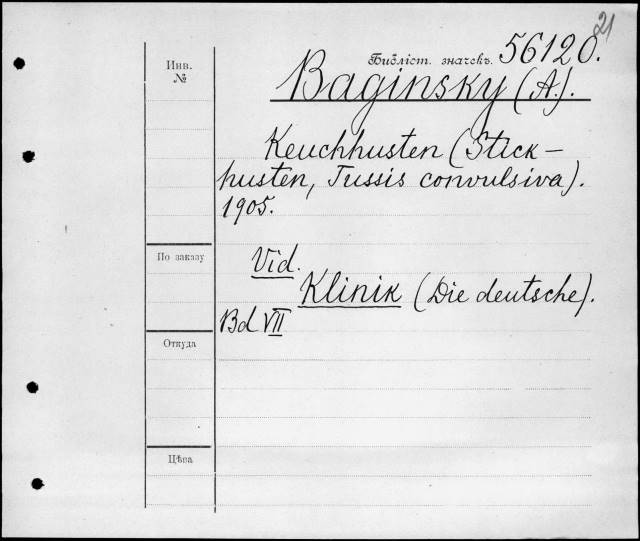 21
Инв.
№
Библіот. значекъ. 56120.
Baginsky (A.).
Keuchhusten (Stick-
husten, Tussis convulsiva).
1905.
По заказу
Vid.
Klinik (Die deutsche).
Bd VII
Откуда
Цѣна